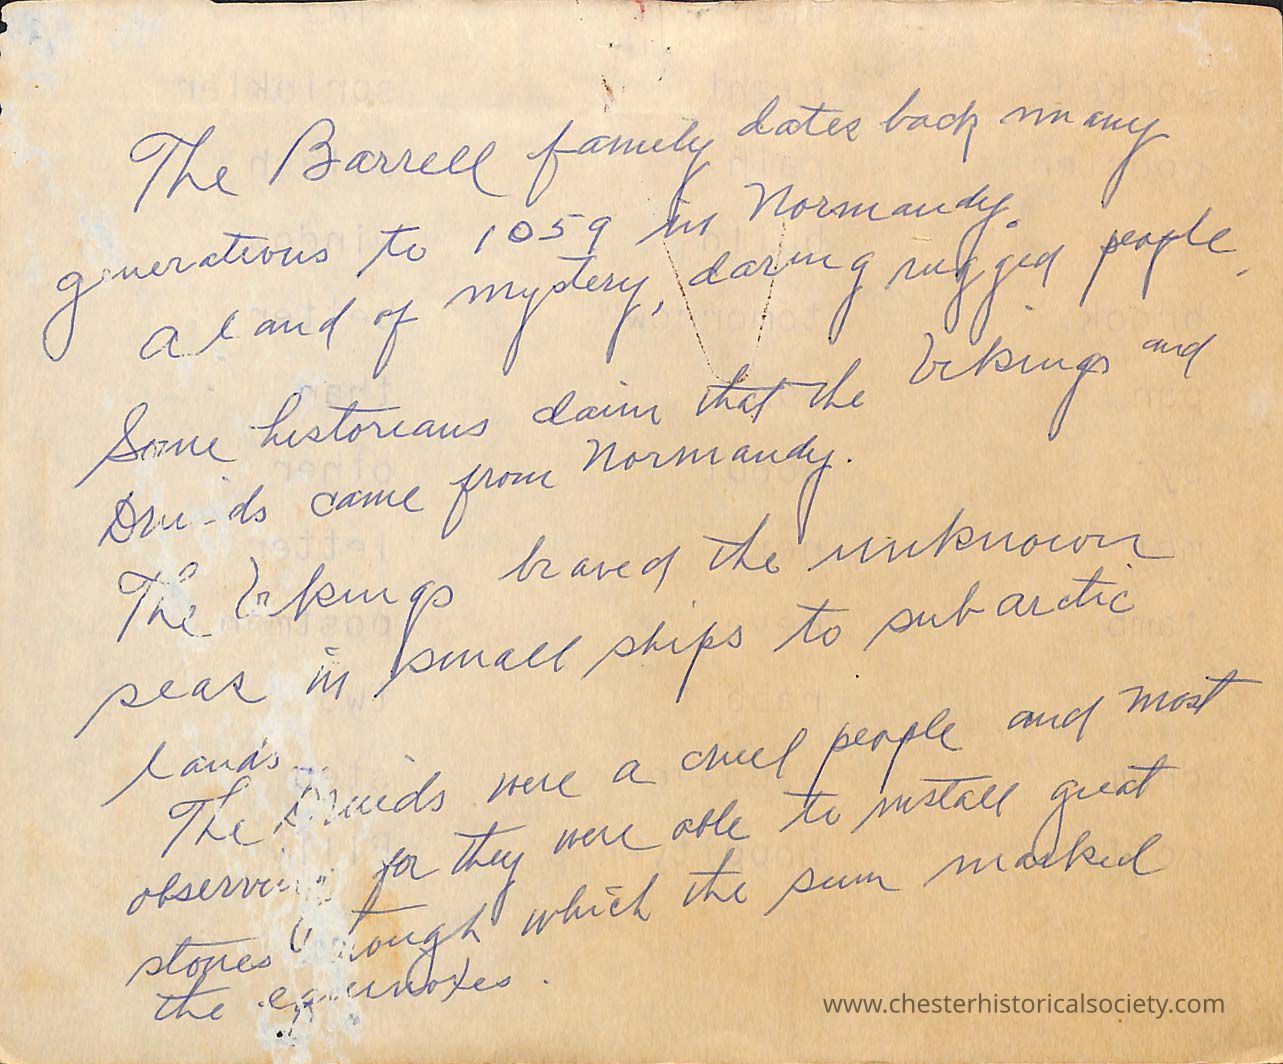 The Barrell family dates back many
generations to 1059 in Normandy.
a land of mystery, daring rugged people.
Some historians claim that the Vikings and
Druids came from Normandy.
The Vikings braved the unknown
seas in small ships to subarctic
lands.
The Druids were a cruel people and most
observing for they were able to install great
stones through which the sun marked
the equinoxes.
www.chesterhistoricalsociety.com